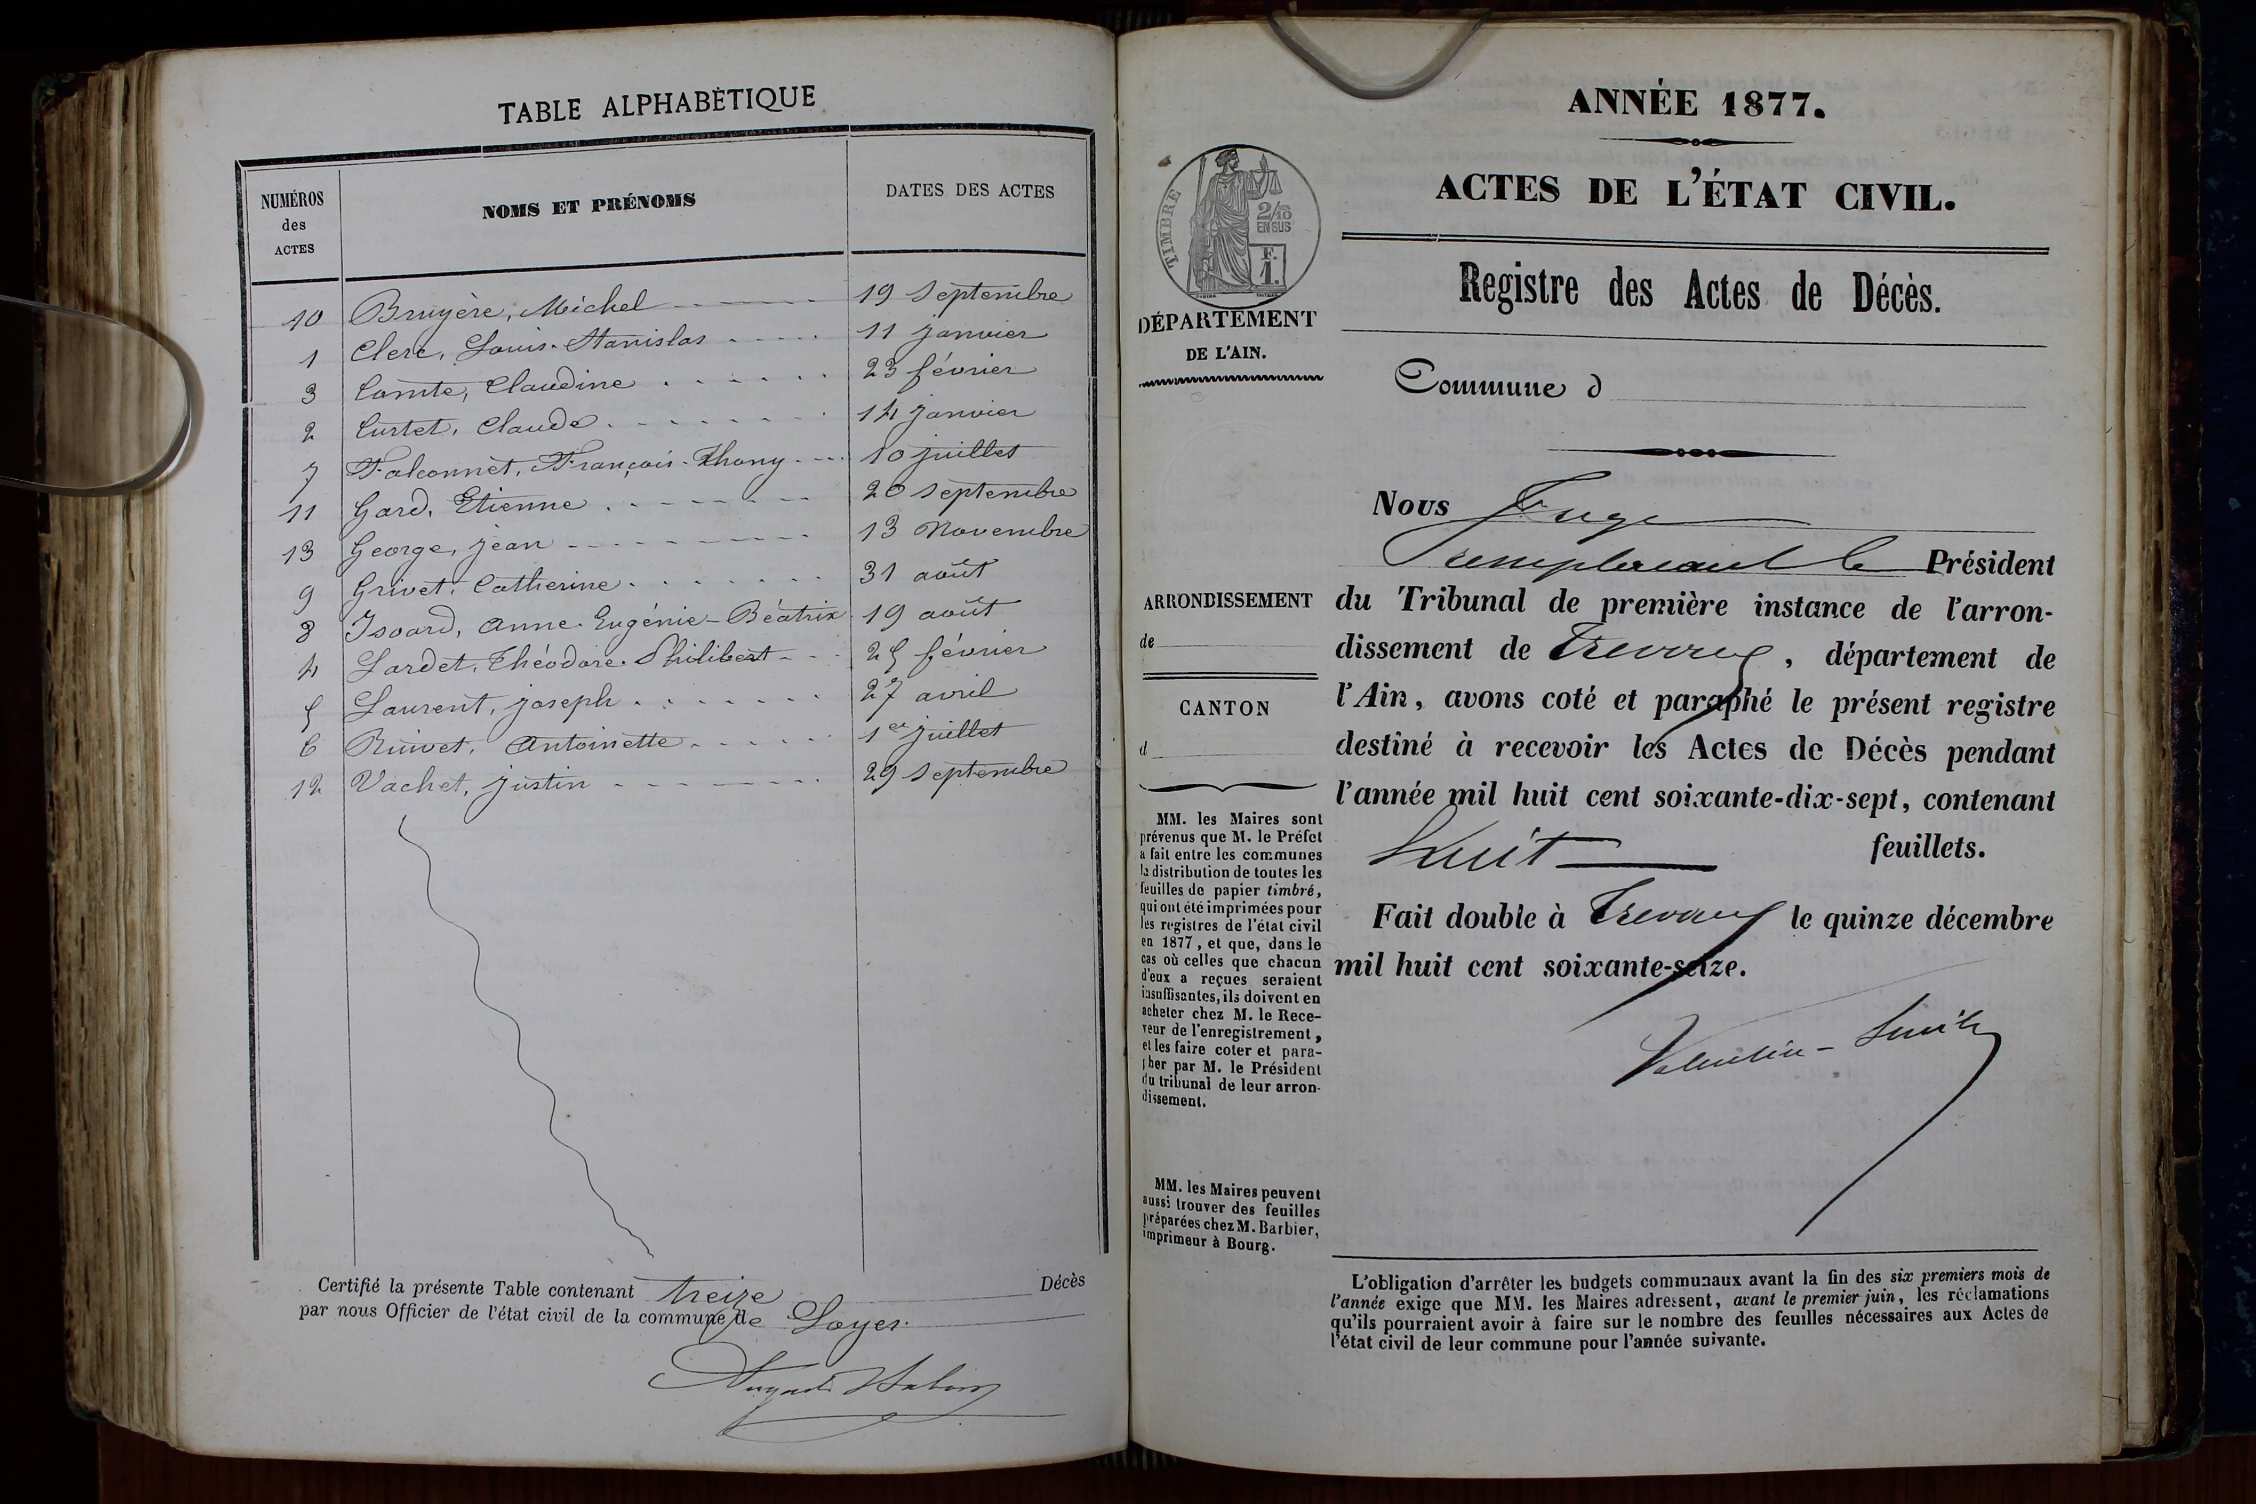 TABLE ALPHABÉTIQUE
NUMÉROS des ACTES NOMS ET PRÉNOMS DATES DES ACTES
10 Bruyère, Michel 19 Septembre
1 Clerc, Louis-Stanislas 11 janvier
3 Comte, Claudine 23 février
2 Curtet, Claude 14 janvier
7 Falconnet, François-Thony 10 juillet
11 Gard, Etienne 20 septembre
13 George, jean 13 Novembre
9 Grivet, Catherine 31 août
8 Isoard, Anne-Eugénie-Béatrix 19 août
4 Lardet, Théodore-Philibert 25 février
5 Laurent, joseph 27 avril
6 Ruivet, Antoinette 1er juillet
12 Vachet, justin 29 septembre
Certifié la présente Table contenant treize Décès
par nous Officier de l'état civil de la commune d de Loyes
ANNÉE 1877.
ACTES DE L'ÉTAT CIVIL.
Registre des Actes de Décès.
Commune d
Nous Juge
remplaçant le Président
du Tribunal de première instance de l'arron-
dissement de Trevoux, département de
l'Ain, avons coté et paraphé le présent registre
destiné à recevoir les Actes de Décès pendant
l'année mil huit cent soixante-dix-sept, contenant
huit feuillets.
Fait double à Trevoux le quinze décembre
mil huit cent soixante-seize.
Valentin-Smith
L'obligation d'arrêter les budgets communaux avant la fin des six premiers mois de
l'année exige que MM. les Maires adressent, avant le premier juin, les réclamations
qu'ils pourraient avoir à faire sur le nombre des feuilles nécessaires aux Actes de
l'état civil de leur commune pour l'année suivante.
TIMBRE
2/10
EN SUS
F.
1.
DÉPARTEMENT
DE L'AIN.
ARRONDISSEMENT
de
CANTON
d
MM. les Maires sont
prévenus que M. le Préfet
a fait entre les communes
la distribution de toutes les
feuilles de papier timbré,
qui ont été imprimées pour
les registres de l'état civil
en 1877, et que, dans le
cas où celles que chacun
d'eux a reçues seraient
insuffisantes, ils doivent en
acheter chez M. le Rece-
veur de l'enregistrement,
et les faire coter et para-
pher par M. le Président
du tribunal de leur arron-
dissement.
MM. les Maires peuvent
aussi trouver des feuilles
préparées chez M. Barbier,
imprimeur à Bourg.